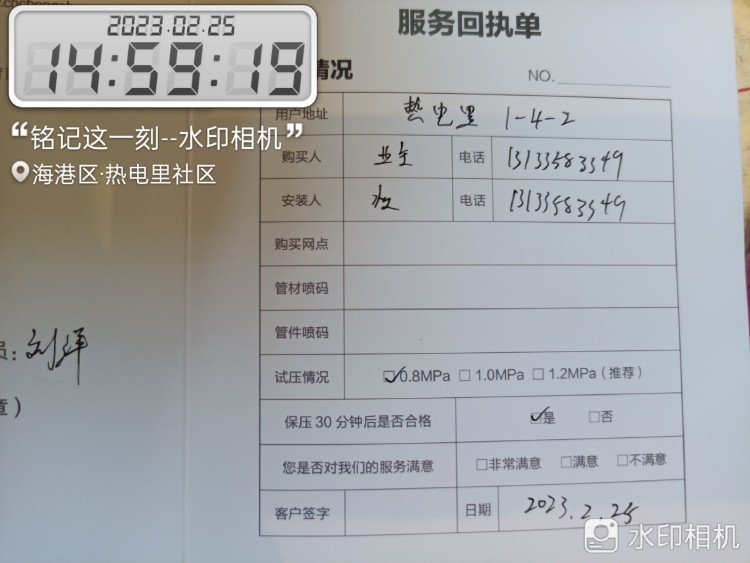 2023.02.25
14:59:19
“铭记这一刻--水印相机”
海港区·热电里社区
服务回执单
情况
NO.
用户地址 热电里 1-4-2
购买人 业主 电话 13133583549
安装人 电话 13133583549
购买网点
管材喷码
管件喷码
试压情况 ☑0.8MPa □1.0MPa □1.2MPa（推荐）
保压30分钟后是否合格 ☑是 □否
您是否对我们的服务满意 □非常满意 □满意 □不满意
客户签字 日期 2023.2.25
员：刘洋
章）
水印相机